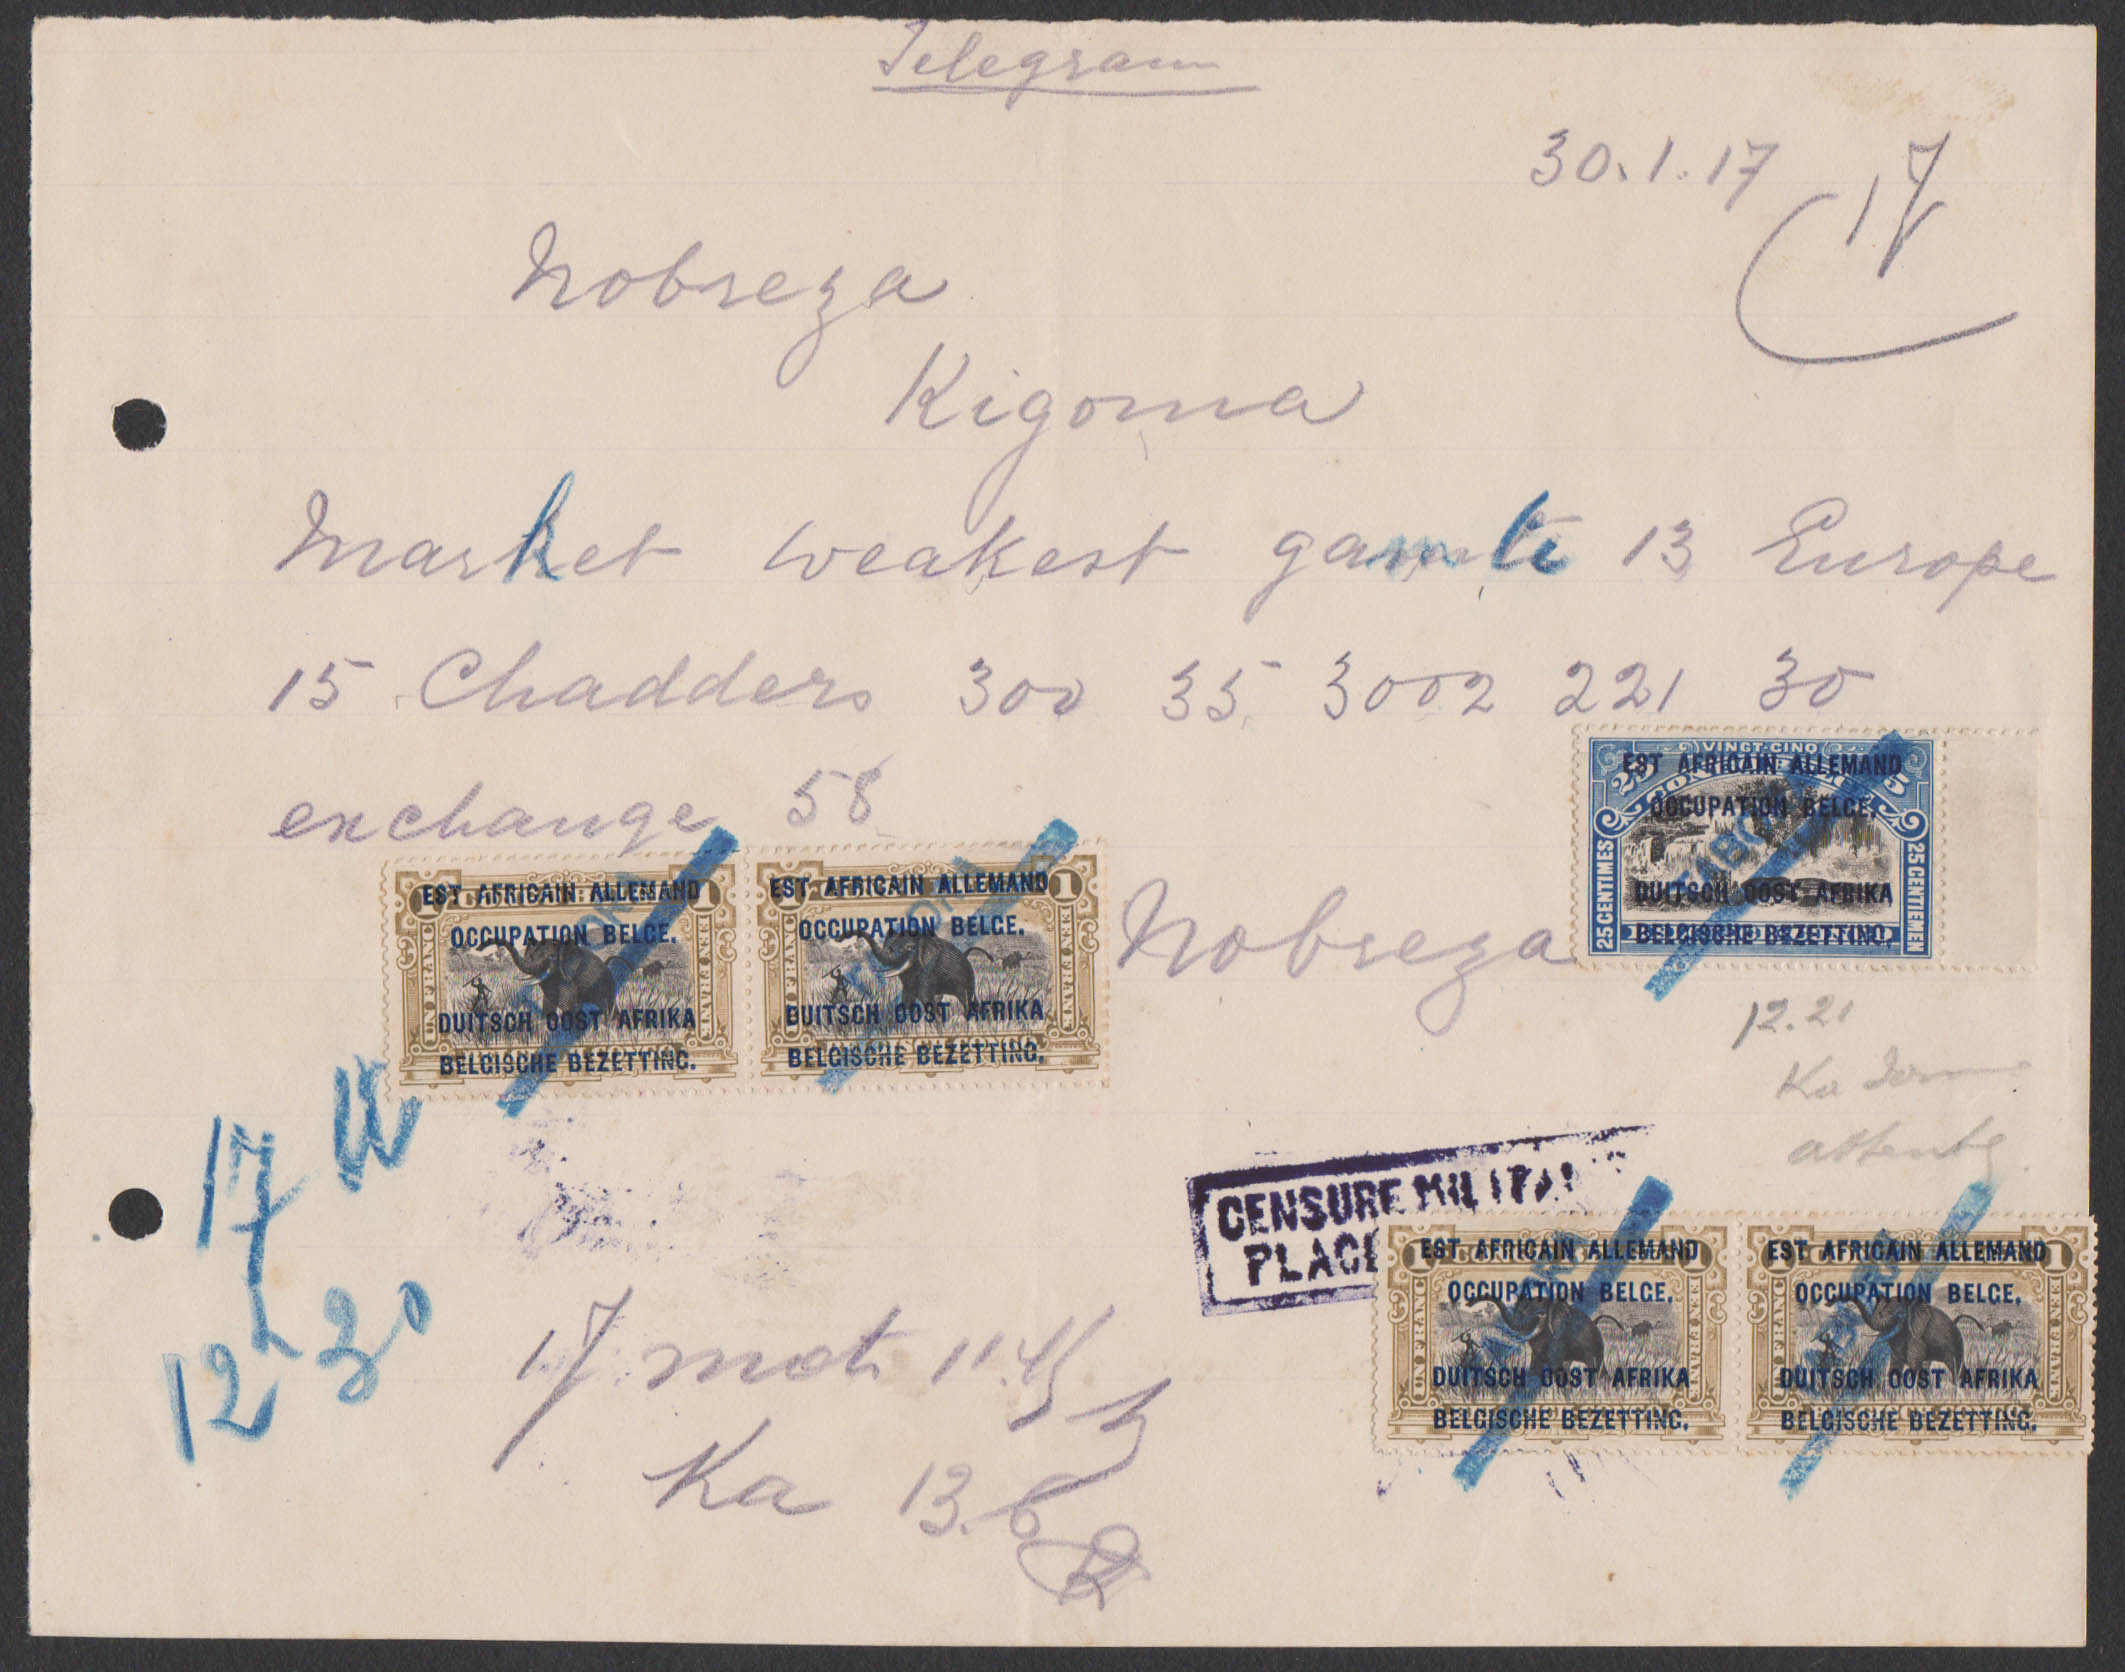 Telegram
30.1.17
17
Nobreza
Kigoma
Market weakest gamti 13 Europe
15 Chadders 300 35 3002 221 30
exchange 58
Nobreza
VINGT-CINQ
25
EST AFRICAIN ALLEMAND
OCCUPATION BELGE.
DUITSCH OOST AFRIKA
BELGISCHE BEZETTING.
25 CENTIMES
25 CENTIEMEN
TABO
1
EST AFRICAIN ALLEMAND
OCCUPATION BELGE.
DUITSCH OOST AFRIKA
BELGISCHE BEZETTING.
UN FRANC
1
EST AFRICAIN ALLEMAND
OCCUPATION BELGE.
DUITSCH OOST AFRIKA
BELGISCHE BEZETTING.
12.21
Ka
attente
17
12 30
CENSURE MILITAI
PLACE
1
EST AFRICAIN ALLEMAND
OCCUPATION BELGE.
DUITSCH OOST AFRIKA
BELGISCHE BEZETTING.
UN FRANC
1
EST AFRICAIN ALLEMAND
OCCUPATION BELGE.
DUITSCH OOST AFRIKA
BELGISCHE BEZETTING.
17 mots 11.45
Ka 13.6